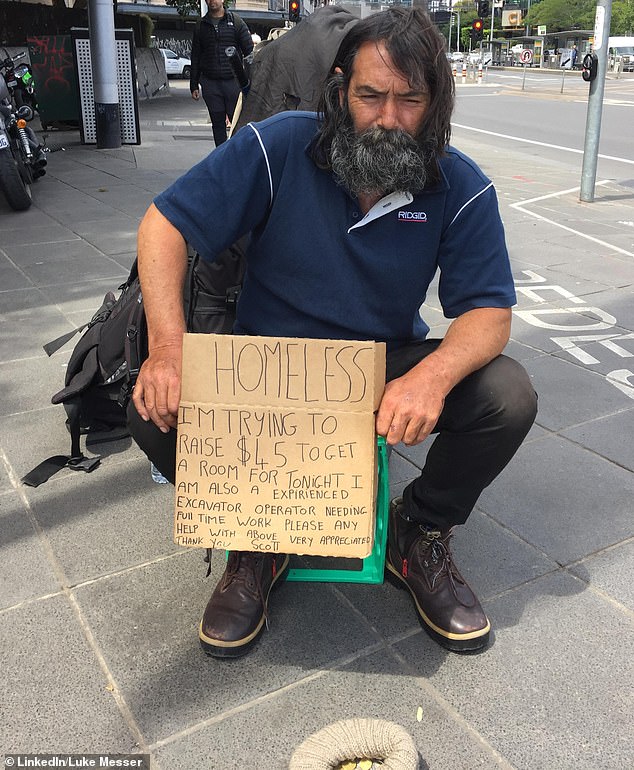 RIDGID
HOMELESS
I'M TRYING TO
RAISE $45 TO GET
A ROOM FOR TONIGHT I
AM ALSO A EXPIRIENCED
EXCAVATOR OPERATOR NEEDING
FULL TIME WORK PLEASE ANY
HELP WITH ABOVE VERY APPRECIATED
THANK YOU SCOTT
© LinkedIn/Luke Messer